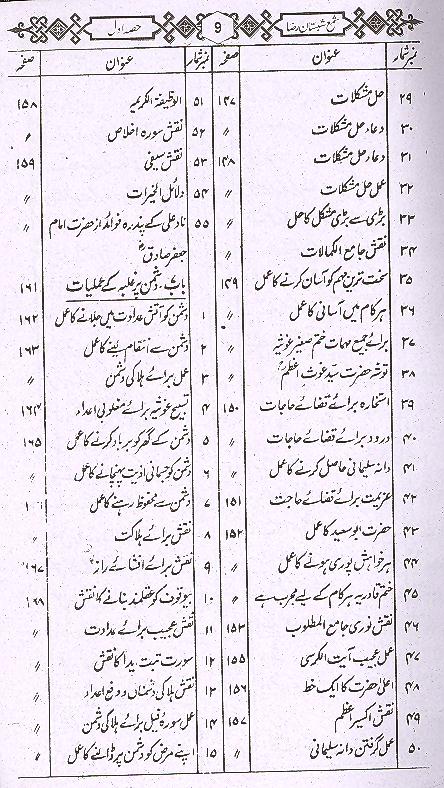 شمع شبستان رضا 9 حصہ اول
نمبر شمار عنوان صفحہ
۲۹ حل مشکلات ۱۴۷
۳۰ دعاء حل مشکلات 〃
۳۱ دعاء حل مشکلات ۱۴۸
۳۲ عمل حل مشکلات 〃
۳۳ بڑی سے بڑی مشکل کا حل 〃
۳۴ نقش جامع الکمالات 〃
۳۵ سخت ترین مہم کو آسان کرنے کا عمل ۱۴۹
۳۶ ہر کام میں آسانی کا عمل 〃
۳۷ برائے جمیع مہمات ختم صغیر غوثیہ 〃
۳۸ توشہ حضرت سید غوث اعظم 〃
۳۹ استخارہ برائے قضائے حاجات ۱۵۰
۴۰ درود برائے قضائے حاجات 〃
۴۱ دانہ سلیمانی حاصل کرنے کا عمل 〃
۴۲ عزیمت برائے قضائے حاجت ۱۵۱
۴۳ حضرت ابو سعید کا عمل ۱۵۲
۴۴ ہر خواہش پوری ہونے کا عمل 〃
۴۵ ختم قادریہ ہر کام کے لیے مجرب ہے 〃
۴۶ نقش نوری جامع المطلوب ۱۵۳
۴۷ عمل عجیب آیت الکرسی ۱۵۵
۴۸ اعلیٰ حضرت کا ایک خط ۱۵۶
۴۹ نقش اکسیر اعظم ۱۵۷
۵۰ عمل گرفتن دانہ سلیمانی 〃
نمبر شمار عنوان صفحہ
۵۱ الوظیفۃ الکریمیہ ۱۵۸
۵۲ نقش سورہ اخلاص 〃
۵۳ نقش سیفی ۱۵۹
۵۴ دلائل الخیرات 〃
۵۵ ناد علی کے پندرہ فوائد از حضرت امام 〃
جعفر صادق
باب ۷، دشمن پر غلبہ کے عملیات ۱۶۱
۱ دشمن کو آتش عداوت میں جلانے کا عمل ۱۶۲
۲ دشمن سے انتقام لینے کا عمل ۱۶۳
۳ عمل برائے ہلاکی دشمن 〃
۴ تسبیح غوثیہ برائے مغلوبی اعداء ۱۶۴
۵ دشمن کے گھر کو برباد کرنے کا عمل ۱۶۵
۶ دشمن کو جسمانی اذیت پہنچانے کا عمل 〃
۷ دشمن سے محفوظ رہنے کا عمل
۸ نقش برائے ہلاکت 〃
۹ نقش برائے افشائے راز ۱۶۷
۱۰ بیوقوف کو عقلمند بنانے کا نقش ۱۶۸
۱۱ نقش عجیب برائے عداوت 〃
۱۲ سورت تبت یدا کا نقش 〃
۱۳ نقش ہلاکی دشمناں و دفع اعداء 〃
۱۴ عمل سورہ فیل برائے ہلاکی دشمن 〃
۱۵ اپنے مرض کو دشمن پر ڈالنے کا عمل 〃